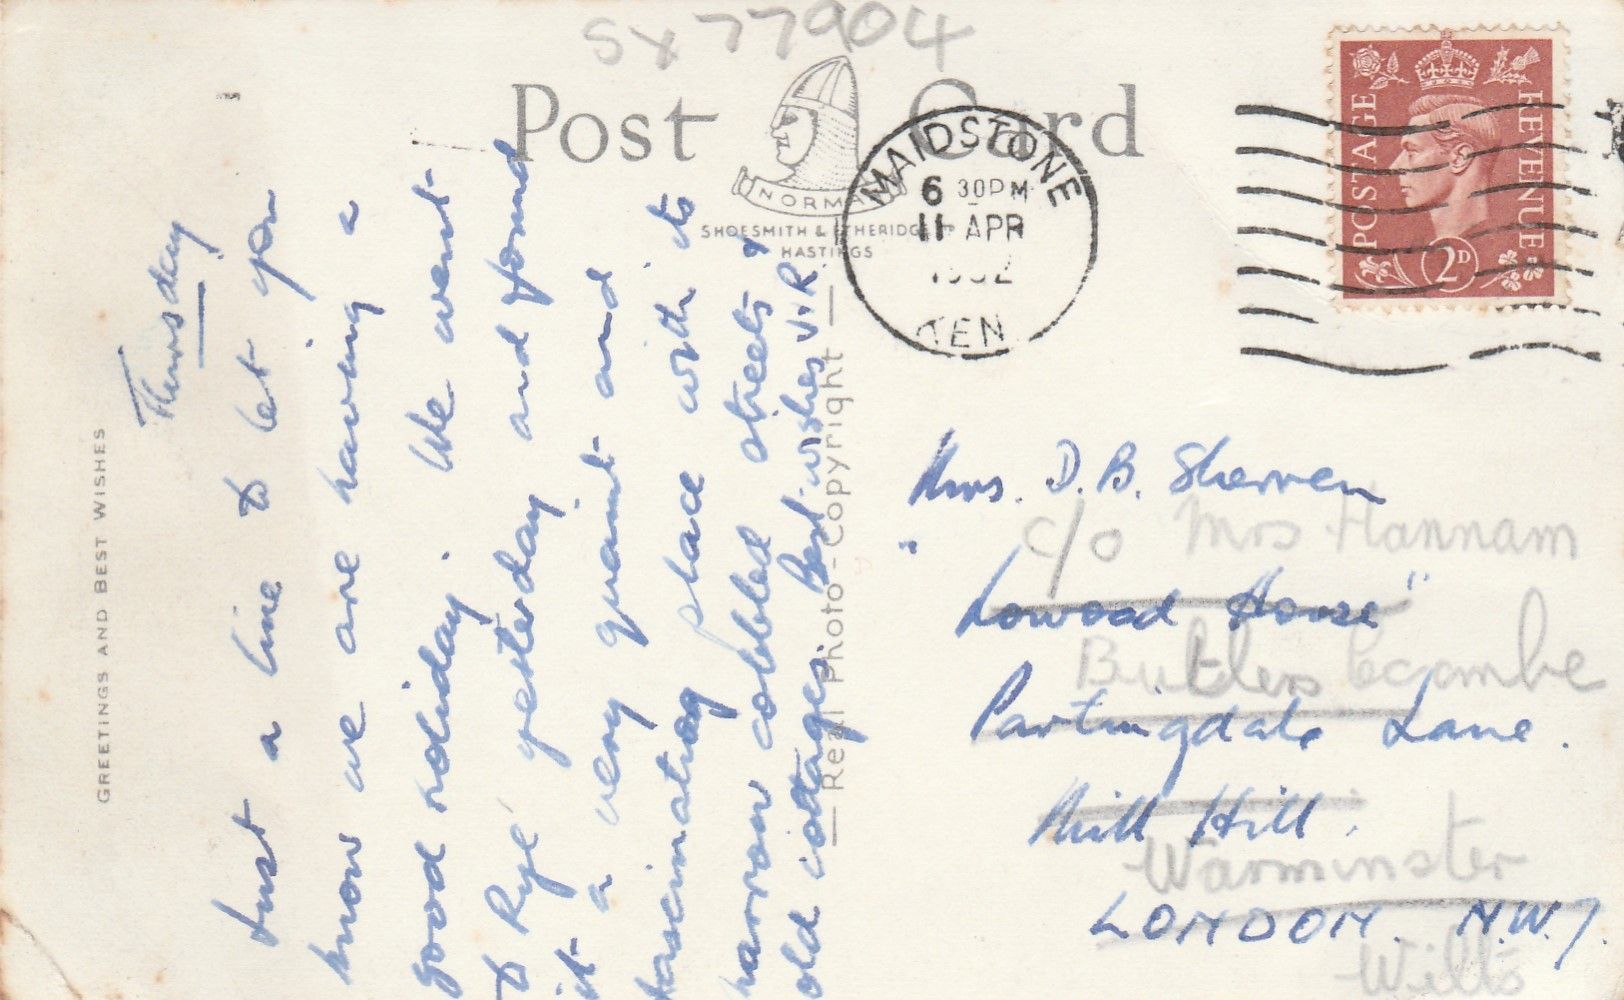 SX77904
Post Card
NORMAN
SHOESMITH & ETHERIDGE LTD
HASTINGS
MAIDSTONE
6 30PM
11 APR
1952
KENT
POSTAGE
REVENUE
2D
GREETINGS AND BEST WISHES
Real Photo-Copyright
Thursday
Just a line to let you
know we are having a
good holiday. We went
to Rye yesterday and found
it a very quaint and
fascinating place with its
narrow cobbled streets &
old cottages. Best wishes V+R
Mrs. D. B. Sherren
c/o Mrs Hannam
"Lowood House"
Butlers Coombe
Partingdale Lane.
Mill Hill.
Warminster
LONDON. N.W.7.
Wilts